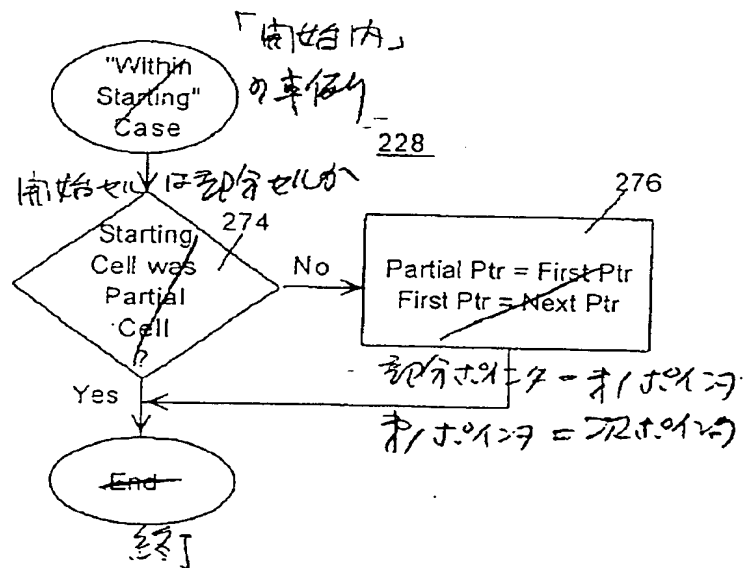 「開始内」
の事例
"Within
Starting"
Case
228
開始セルは部分セルか
276
274
Starting
Cell was
Partial
Cell
?
No
Partial Ptr = First Ptr
First Ptr = Next Ptr
部分ポインタ = 第1ポインタ
Yes
第1ポインタ = 次ポインタ
End
終了